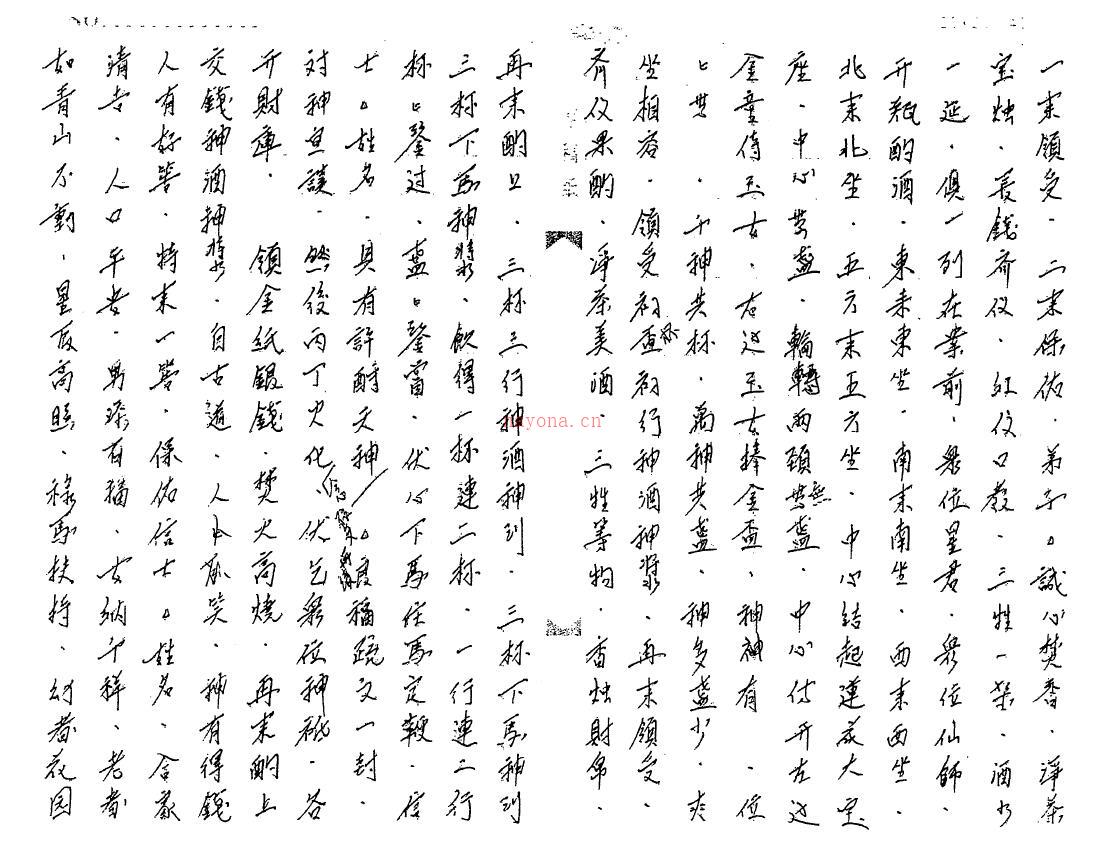 一来領受．二来保佑．弟子△誠心焚香．淨茶
宝烛．長錢斉仪．紅仪口教．三牲一架．酒水
一延．俱一列在業前．眾位星君．眾位仙師．
开瓶酌酒．東来東坐．南来南坐．西来西坐．
北来北坐．五方来五方坐．中心結起蓮花大宝
座．中心共盞．輪轉兩頭無盞．中心付开左边
金童侍玉女．右边玉女捧金盃．神神有．位
位共．千神共杯．萬神共盞．神多盞少．夾
坐相容．領受初盃初行神酒神漿．再来領受．
斉仪果酌．淨茶美酒．三牲等物．香烛財帛．
再来酌旦．三杯三行神酒神到．三杯下馬神到
三杯下馬神漿．飲得一杯連二杯．一行連二行
杯杯鑒过．盞盞鑒當．伏以下馬住馬定鞍．信
士△姓名．具有許酧天神．疏文一封．
对神宣讀．然後丙丁火化．伏乞眾位神祇．各
开財庫．領金紙銀錢．焚火高燒．再来酌上
交錢神酒神漿．自古道．人 笑．神有得錢
人有好 ．特来一 ．保佑信士△姓名．合家
清吉．人口平安．男添有福．女納千祥．老者
如青山不動．星辰高照．祿馬扶持．幼者花园
nayona.cn